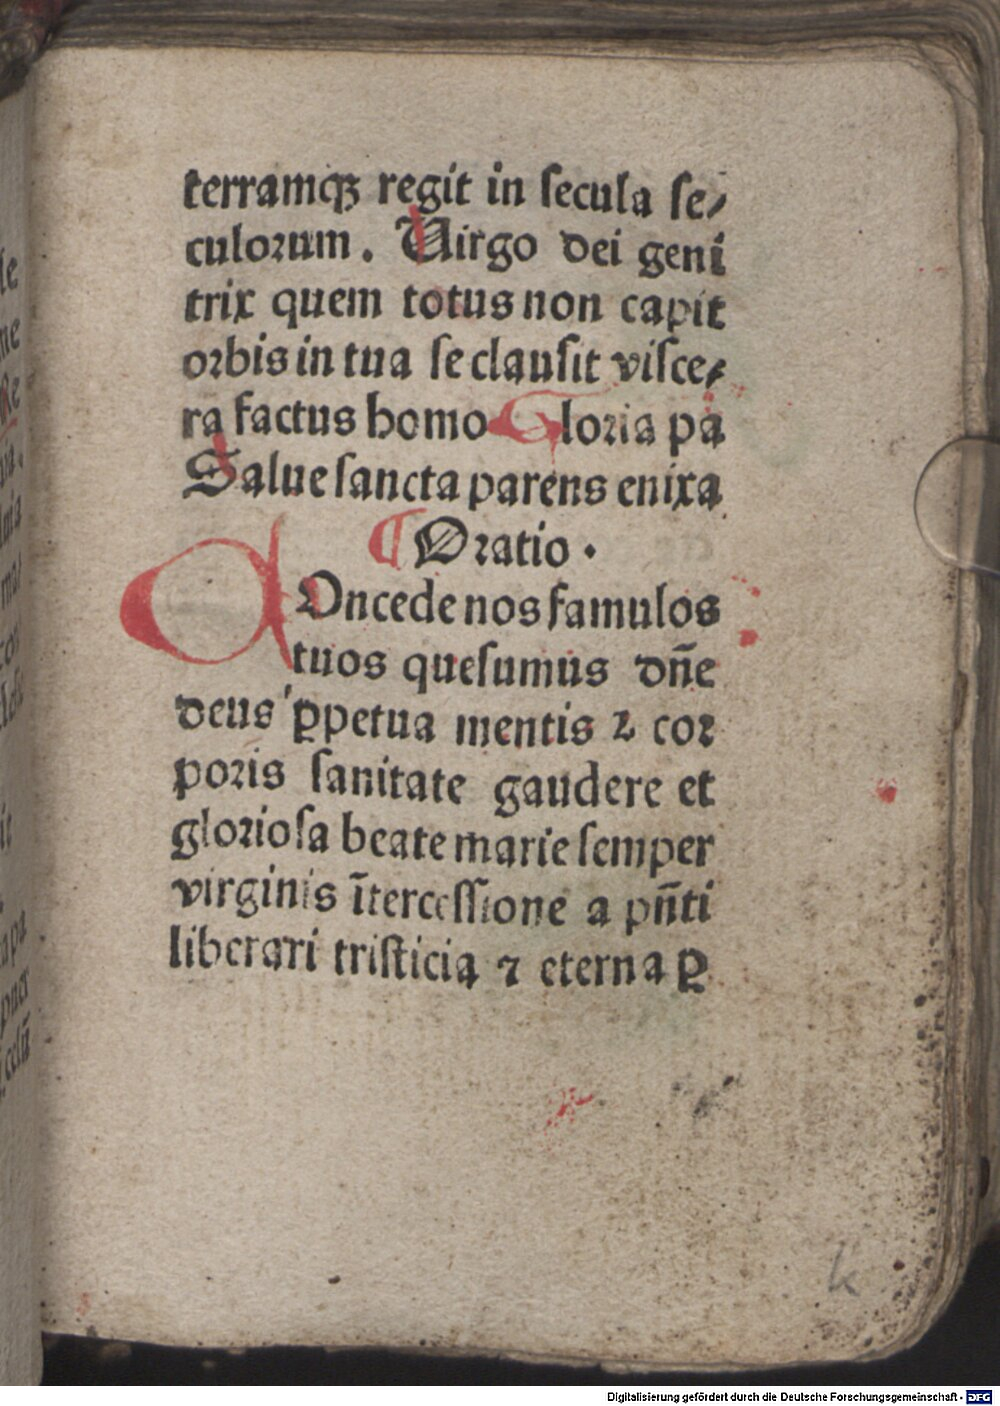 terramqꝫ regit in secula se⸗
culorum. Uirgo dei geni
trix quem totus non capit
orbis in tua se clausit visce⸗
ra factus homo Gloria pa
Salue sancta parens enixa
¶ Oratio.
COncede nos famulos
tuos quesumus dñe
deus ꝑpetua mentis ⁊ cor
poris sanitate gaudere et
gloriosa beate marie semper
virginis ītercessione a pñti
liberari tristicia ⁊ eterna ꝑ
k
Digitalisierung gefördert durch die Deutsche Forschungsgemeinschaft - DFG